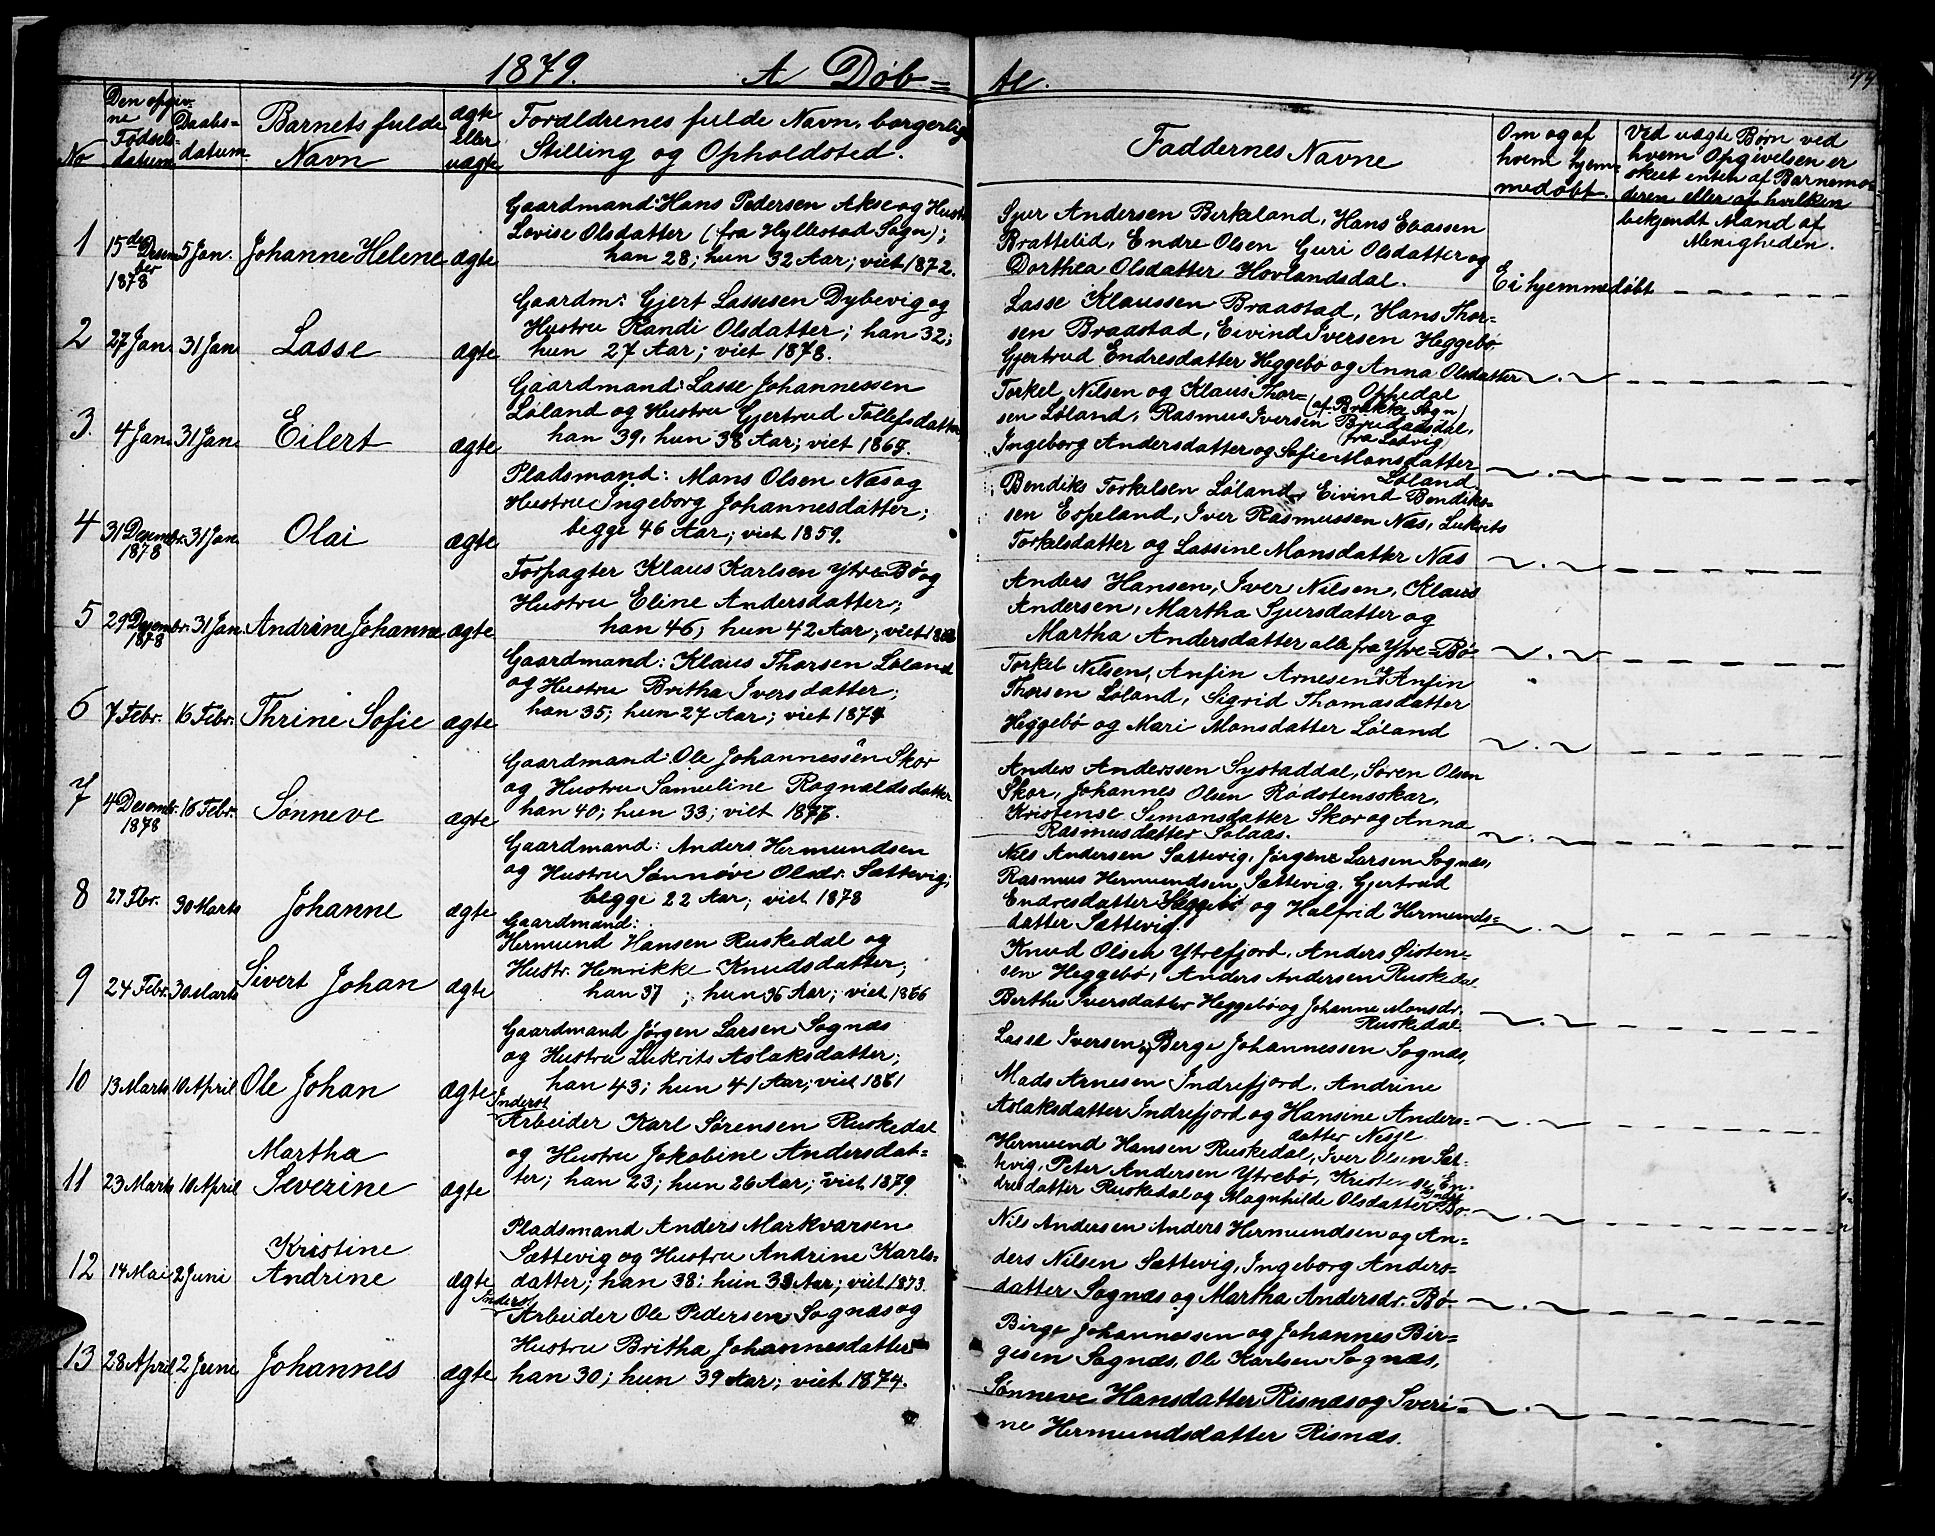 1879. A Døb= te.
No
Den opgiv-
ne
Fødsels-
datum
Daabs-
datum
Barnets fulde
Navn
ægte
eller
uægte
Forældrenes fulde Navn, borgerlig
Stilling og Opholdsted.
Faddernes Navne
Om og af
hvem hjem-
medøbt.
Ved uægte Børn ved
hvem Opgivelsen er
skeet enten af Barnemo-
deren eller af hvilken
bekjendt Mand af
Menigheden.
1 15de Desem-
ber
1878 5 Jan. Johanne Helene ægte
Gaardmand: Hans Pedersen Akse og Hustr.
Lovise Olsdatter (fra Hyllestad Sogn);
han 28; hun 32 Aar; viet 1872.
Sjur Andersen Birkeland, Hans
Brattelid, Endre Olsen Guri Olsdatter og
Dorthea Olsdatter Hovlandsdal.
Ei hjemmedøbt
2 27 Jan. 31 Jan. Lasse ægte
Gaardm: Gjert Lassesen Dybevig og
Hustru Randi Olsdatter; han 32;
hun 27 Aar; viet 1878.
Lasse Klaussen Braastad, Hans Thor-
sen Braastad, Eivind Iversen Heggebø,
Gjertrud Endresdatter Heggebø og Anna Olsdatter
Ophedal
3. 4 Jan. 31 Jan. Eilert ægte
Gaardmand: Lasse Johannessen
Løland og Hustru Gjertrud Tollefsdatter
han 39, hun 38 Aar; viet 1867.
Torkel Nilsen og Klaus Thor=
(af Brække Sogn)
sen Løland, Rasmus Iversen
fra Ladvig
Ingeborg Andersdatter og Sofie Monsdatter
Løland
4 31 Desembr. 31 Jan.
1878 Olai ægte
Pladsmand: Mons Olsen Næs og
Hustru Ingeborg Johannesdatter;
begge 46 Aar; viet 1859.
Bendiks Torkelsen Løland, Eivind Bendiks-
sen Espeland, Iver Rasmussen Næs, Lukrits
Torkelsdatter og Lassine Monsdatter Næs
5 29 Desembr. 31 Jan.
1878 Andrine Johanne ægte
Forpagter Klaus Karlsen Ytre=Bø og
Hustru Eline Andersdatter;
han 46; hun 42 Aar; viet
Anders Hansen, Iver Nilsen, Klaus
Andersen, Martha Sjursdatter og
Martha Andersdatter alle fra Ytre=Bø
6 7 Febr. 16 Febr. Thrine Sofie ægte
Gaardmand: Klaus Thorsen Løland
og Hustru Britha Iversdatter;
han 35; hun 27 Aar; viet 1874
Torkel Nilsen, Anfin Arnesen, Anfin
Thorsen Løland, Sigrid Thomasdatter
Heggebø og Mari Monsdatter Løland
7 4 Desembr. 16 Febr.
1878 Sønneve ægte
Gaardmand: Ole Johannessen Skor
og Hustru Samuline Ragnaldsdatter
han 40; hun 33; viet 1877.
Anders Anderssen Systaddal, Søren Olsen
Skor, Johannes Olsen Rødstensskar,
Kristense Simonsdatter Skor og Anna
Rasmusdatter Solaas.
8 27 Fbr. 30 Marts Johanne ægte
Gaardmand: Anders Hermundsen
og Hustru Sønnøve Olsdr. Sættevig;
begge 22 Aar; viet 1878
Nils Andersen Sættevig, Jørgen Larsen Sognæs,
Rasmus Hermundsen, Sættevig, Gjertrud
Endresdatter Heggebø og Halfrid Hermunds=
datter Sættevig.
9 24 Febr. 30 Marts Sivert Johan ægte
Gaardmand:
Hermund Hansen Ruskedal og
Hustr. Henrikke Knudsdatter;
han 37; hun 36 Aar; viet 1866
Knud Olsen Ytrefjord, Anders Øisten-
sen Heggebø, Anders Andersen Ruskedal
Berthe Iversdatter Heggebø og Johanne Monsdr.
Ruskedal
10 13 Marts 10 April Ole Johan ægte
Gaardmand Jørgen Larsen Sognæs
og Hustru Lukrits Aslaksdatter;
han 43; hun 41 Aar; viet 1861
Lasse Iversen, Berge Johannessen Sognæs,
Mads Arnesen Indrefjord, Andrine
Aslaksdatter Indrefjord og Hansine Anders-
datter Nesje
11 23 Marts 10 April Martha
Severine ægte
Inderst
Arbeider Karl Sørensen Ruskedal
og Hustru Jakobine Andersdat=
ter; han 23; hun 26 Aar; viet 1879.
Hermund Hansen Ruskedal, Iver Olsen Sæt-
tevig, Peter Andersen Ytrebø, En-
dresdatter Ruskedal og Magnhilde Olsdatter Bø.
12 14 Mai 2 Juni Kristine
Andrine ægte
Pladsmand Anders Markvarsen
Sættevig og Hustru Andrine Karls-
datter; han 38; hun 33 Aar; viet 1873.
Nils Andersen Anders Hermundsen og An=
ders Nilsen Sættevig, Ingeborg Anders-
datter Sognæs og Martha Andersdr. Bø
13 28 April 2 Juni Johannes ægte
Inderst
Arbeider Ole Pedersen Sognæs og
Hustru Britha Johannesdatter
han 30; hun 39 Aar; viet 1874.
Birge Johannessen og Johannes Bir=
gesen Sognæs, Ole Karlsen Sognæs,
Sønneve Hansdatter Risnæs og Sveri=
ne Hermundsdatter Risnæs.